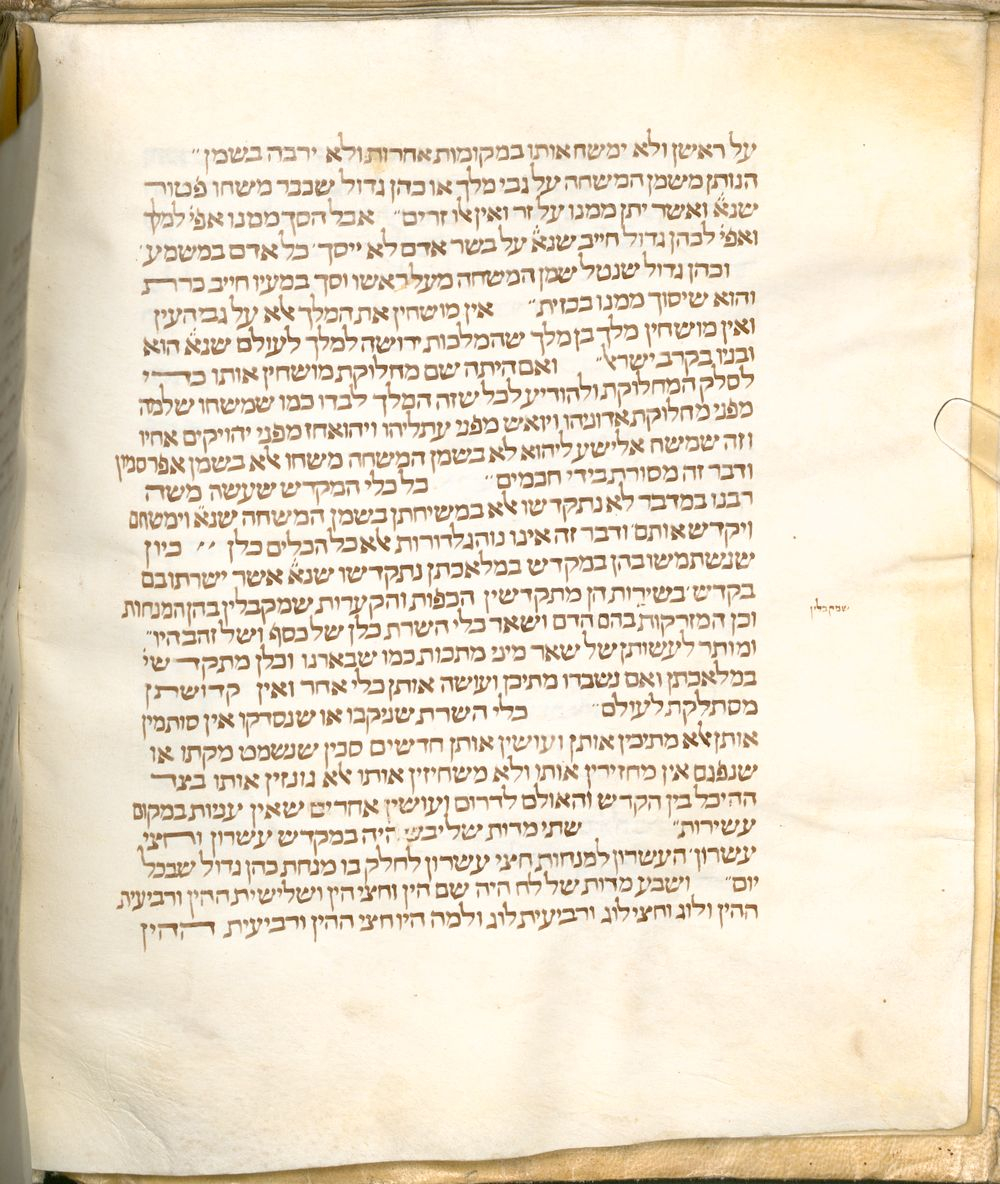 על ראשן ולא ימשח אותו במקומות אחרות ולא ירבה בשמן״
הנותן משמן המשחה על גבי מלך או כהן גדול שכבר משחו פטור
שנא׳ ואשר יתן ממנו על זר ואין אלו זרים״ אבל הסך ממנו אפי׳ למלך
ואפי׳ לכהן גדול חייב שנא׳ על בשר אדם לא ייסך׳ כל אדם במשמע׳
וכהן גדול שנטל שמן המשחה מעל ראשו וסך במעיו חייב כרת
והוא שיסוך ממנו בכזית״ אין מושחין את המלך אלא על גבי העין
ואין מושחין מלך בן מלך שהמלכות ירושה למלך לעולם שנא׳ הוא
ובניו בקרב ישראל״ ואם היתה שם מחלוקת מושחין אותו כדי
לסלק המחלוקת ולהודיע לכל שזה המלך לבדו כמו שמשחו שלמה
מפני מחלוקת אדוניהו ויואש מפני עתליהו ויהואחז מפני יהויקים אחיו
וזה שמשח אלישע ליהוא לא בשמן המשחה משחו אלא בשמן אפרסמון
ודבר זה מסורת בידי חכמים״ כל כלי המקדש שעשה משה
רבנו במדבר לא נתקדשו אלא במשיחתן בשמן המשחה שנא׳ וימשחם
ויקדש אותם׳ ודבר זה אינו נוהג לדורות אלא כל הכלים כלן ׳׳ כיון
שנשתמשו בהן במקדש במלאכתן נתקדשו שנא׳ אשר ישרתו בם
בקדש׳ בשירות הן מתקדשין הכפות והקערות שמקבלין בהן המנחות
שמקבלין
וכן המזרקות בהם הדם ושאר כלי השרת כלן של כסף ושל זהב היו״
ומותר לעשותן של שאר מיני מתכות כמו שבארנו וכלן מתקדשי׳
במלאכתן ואם נשברו מתיכן ועושה אותן כלי אחר ואין קדושתן
מסתלקת לעולם״ כלי השרת שניקבו או שנסדקו אין סותמין
אותן אלא מתיכין אותן ועושין אותן חדשים סכין שנשמט מקתו או
שנפגם אין מחזירין אותו ולא משחיזין אותו אלא גונזין אותו בצד
ההיכל בין הקדש והאולם לדרום ועושין אחרים שאין עניות במקום
עשירות״ שתי מדות של יבש היה במקדש עשרון וחצי
עשרון׳ העשרון למנחות חצי עשרון לחלק בו מנחת כהן גדול שבכל
יום״ ושבע מדות של לח היה שם הין וחצי הין ושלישית ההין ורביעית
ההין ולוג וחצי לוג ורביעית לוג ולמה היו חצי ההין ורביעית ההין